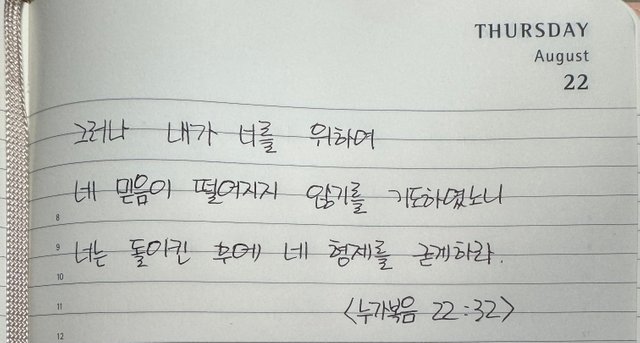 THURSDAY
August
22
그러나 내가 너를 위하여
네 믿음이 떨어지지 않기를 기도하였노니
8
9 너는 돌이킨 후에 네 형제를 굳게하라.
10
11 <누가복음 22:32>
12